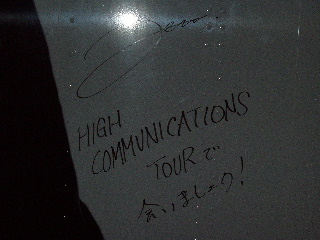 HIGH
COMMUNICATIONS
TOURで
会いましょう!